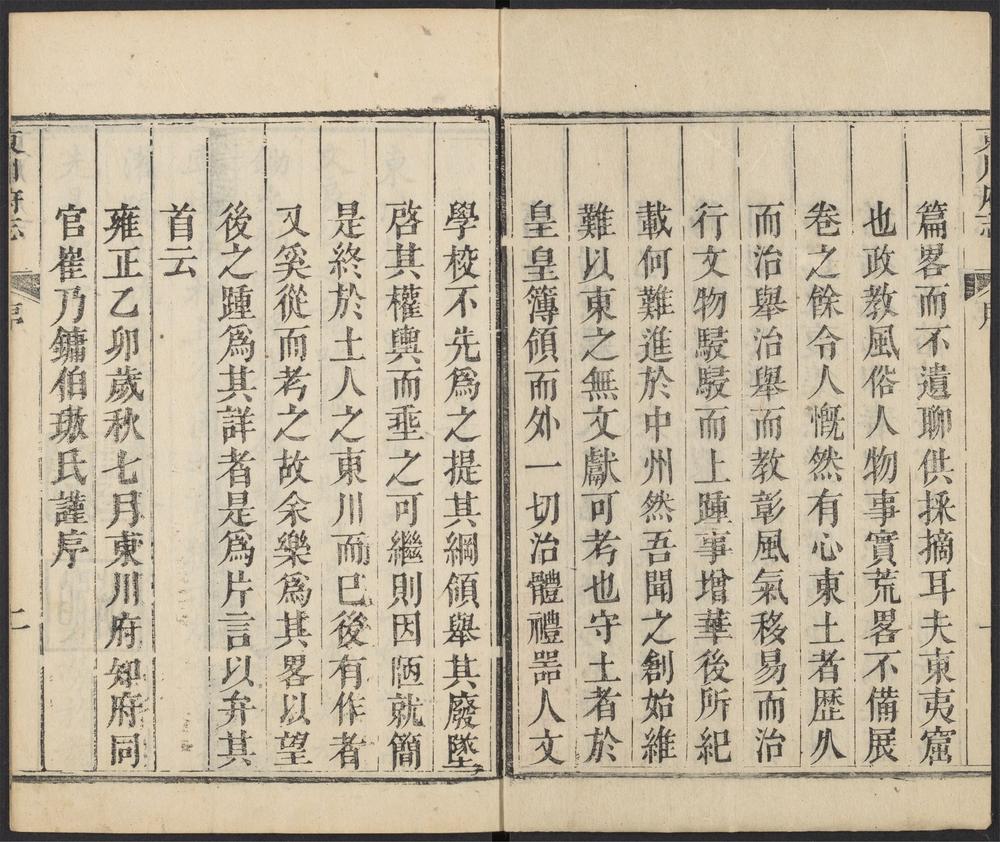 篇畧而不遺聊供採摘耳夫東夷窟
也政教風俗人物事實荒畧不備展
卷之餘令人慨然有心東土者歷久
而治舉治舉而教彰風氣移易而治
行文物駸駸而上踵事增華後所紀
載何難進於中州然吾聞之創始維
難以東之無文獻可考也守土者於
皇皇簿領而外一切治體禮噐人文
學校不先爲之提其綱領舉其廢墜
啓其權輿而埀之可繼則因陋就簡
是終於土人之東川而已後有作者
又奚從而考之故余樂爲其畧以望
後之踵爲其詳者是爲片言以弁其
首云
雍正乙卯歲秋七月東川府知府同
官崔乃鏞伯璈氏謹序
東川府志
序